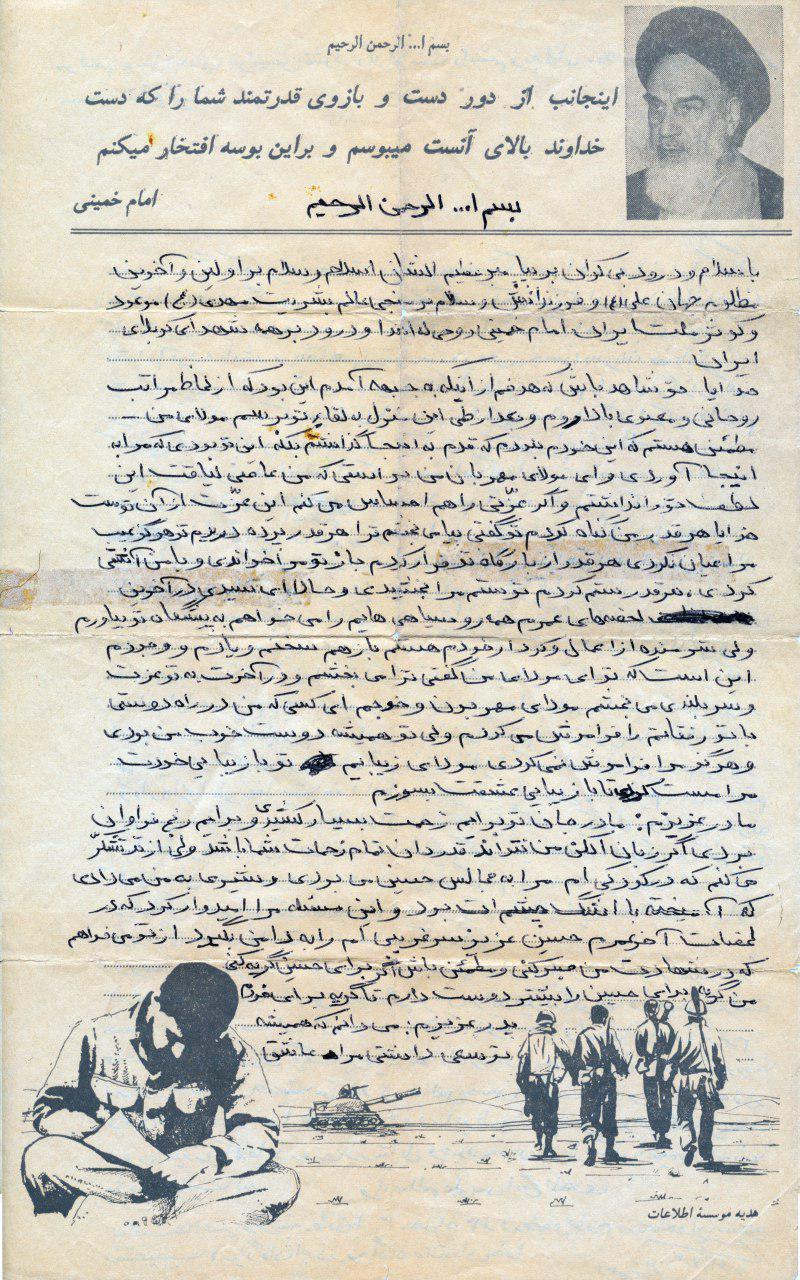 بسم ا... الرحمن الرحیم
اینجانب از دور دست و بازوی قدرتمند شما را که دست
خداوند بالای آنست میبوسم و براین بوسه افتخار میکنم
امام خمینی
بسم ا... الرحمن الرحیم
با سلام و درود بی کران بر پیامبر عظیم الشان اسلام و سلام بر اولین و آخرین
مظلوم جهان علی (ع) و فرزندانش و سلام بر منجی عالم بشریت مهدی (عج) موعود
و درود بر همه شهدای کربلای
ایران
خدایا تو شاهد باش که هدفم از اینکه به جبهه آمدم این بود که از لحاظ مراتب
روحانی و معنوی بالا روم و بعد از طی این منزل به لقای تو برسم مولای من
مطمئن هستم که این خودم نبودم که قدم به اینجا گذاشتم بلکه این تو بودی که مرا به
اینجا آوردی و ای مولای مهربان من دانستی که من عاصی لیاقت این
لطف تو را نداشتم و اگر عزتی را هم احساس می کنم این عزت از آن توست
خدایا هر قدر من گناه کردم تو گفتی بیا می بخشم ترا هر قدر پرده دریدم تو هرگز عیب
مرا عیان نکردی هر قدر از بارگاه تو فرار کردم باز تو مرا خواندی و با من آشتی
کردی، هر قدر ستم کردم تو ستم مرا بخشیدی و حالا ای سیدی در آخرین
لحظه‌های عمرم همه رو سیاهی هایم را می خواهم به پیشگاه تو بیاورم
ولی شرمنده از اعمال و کردار خودم هستم باز هم سخنم و یادم و وجودم
این است که تو ای مولای من گفتی ترا می بخشم و در آخرت به تو عزت
و سربلندی می بخشم مولای مهربون و خوبم ای کسی که من در راه دوستی
با تو رفاقتم را فراموش می کردم ولی تو همیشه دوست خوب من بودی
و هرگز مرا فراموش نمی کردی مولای زیبایم تو با زیبایی خودت
مرا مست کردی تا با زیبایی عشقت بسوزم
مادر عزیزم: مادر جان تو برایم زحمت بسیار کشیدی و برایم رنج فراوان
بردی اگر زبان الکن من نتواند قدردان تمام زحمات شما باشد ولی از تو تشکر
می کنم که در کودکی ام مرا به مجالس حسین می بردی و شیری به من می دادی
که آمیخته با اشک چشم ات بود و این مسئله مرا امیدوار کرد که در
لحظات آخر عمرم حسین عزیز سر غریبی ام را به دامن بگیرد از تو می خواهم
که در شهادت من صبر کنی و مطمئن باش اگر برای حسین گریه کنی
من گریه برای حسین را بیشتر دوست دارم تا گریه برای خودم
پدر عزیزم: می دانم که همیشه
تو سعی داشتی مرا عاشق
هدیه موسسهٔ اطلاعات